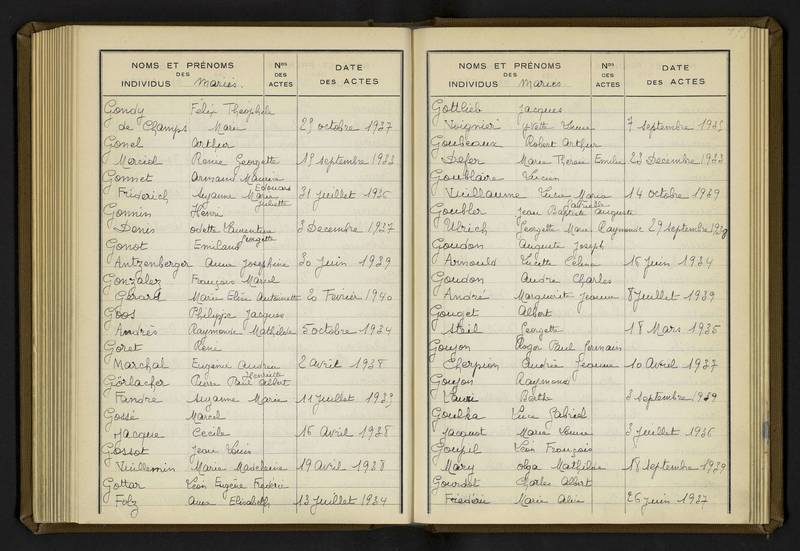 NOMS ET PRÉNOMS DES INDIVIDUS Mariés. Nos DES ACTES DATE DES ACTES
Gondy Félix Théophile
de Champs Marie 29 octobre 1937
Gonel Arthur
Marciel Renée Georgette 19 septembre 1933
Gonnet Armand Maurice Edouard
Friderich Suzanne Marie Juliette 31 juillet 1936
Gonnin Henri
Denis odette Laurentine Georgette 3 Decembre 1937
Gonot Emiland
Antzenberger Anna Joséphine 30 juin 1939
Gonzalez François Marcel
Gérard Marie Elise Antoinette 20 Fevrier 1940
Goos Philippe Jacques
Andrès Raymonde Mathilde 5 octobre 1934
Goret René
Marchal Eugenie Andrea Henriette 2 avril 1938
Görlacher Pierre Paul Albert
Fandre Suzanne Marie 11 juillet 1939
Gossé Marcel
Jacquie Cecile 16 Avril 1938
Gossot Jean Louis
Vuillemin Marie Madeleine 19 avril 1938
Gottar Léon Eugène Frédéric
Folz Anna Elisabeth 13 juillet 1934
NOMS ET PRÉNOMS DES INDIVIDUS Mariés. Nos DES ACTES DATE DES ACTES
Gottlieb Jacques
Voignier Yvette 7 septembre
Goubeaux Robert Arthur
Defer Marie Thérèse Emilie 23 Decembre 1933
Goublaire Lucien
Vuillaume Luce Maria Gabrielle 14 octobre 1939
Goubler Jean Baptiste Auguste
Ulrich Georgette Marie Raymonde 29 septembre
Goudon Auguste Joseph
Arnould Lucette Céline 16 juin 1934
Goudon André Charles
André Marguerite Jeanne 8 juillet 1939
Gouget Albert
Steil Georgette 18 Mars 1935
Goujon Roger Paul Germain
Cherpion Andrée Jeanne 10 Avril 1937
Goujon Raymond
Berthe 2 septembre 1939
Goulka Luce Gabriel
Jacquot Marie 3 juillet 1936
Goupil Léon François
Mary olga Mathilde 18 septembre 1939
Gourdot Charles Albert
Frédéric Marie 26 juin 1937